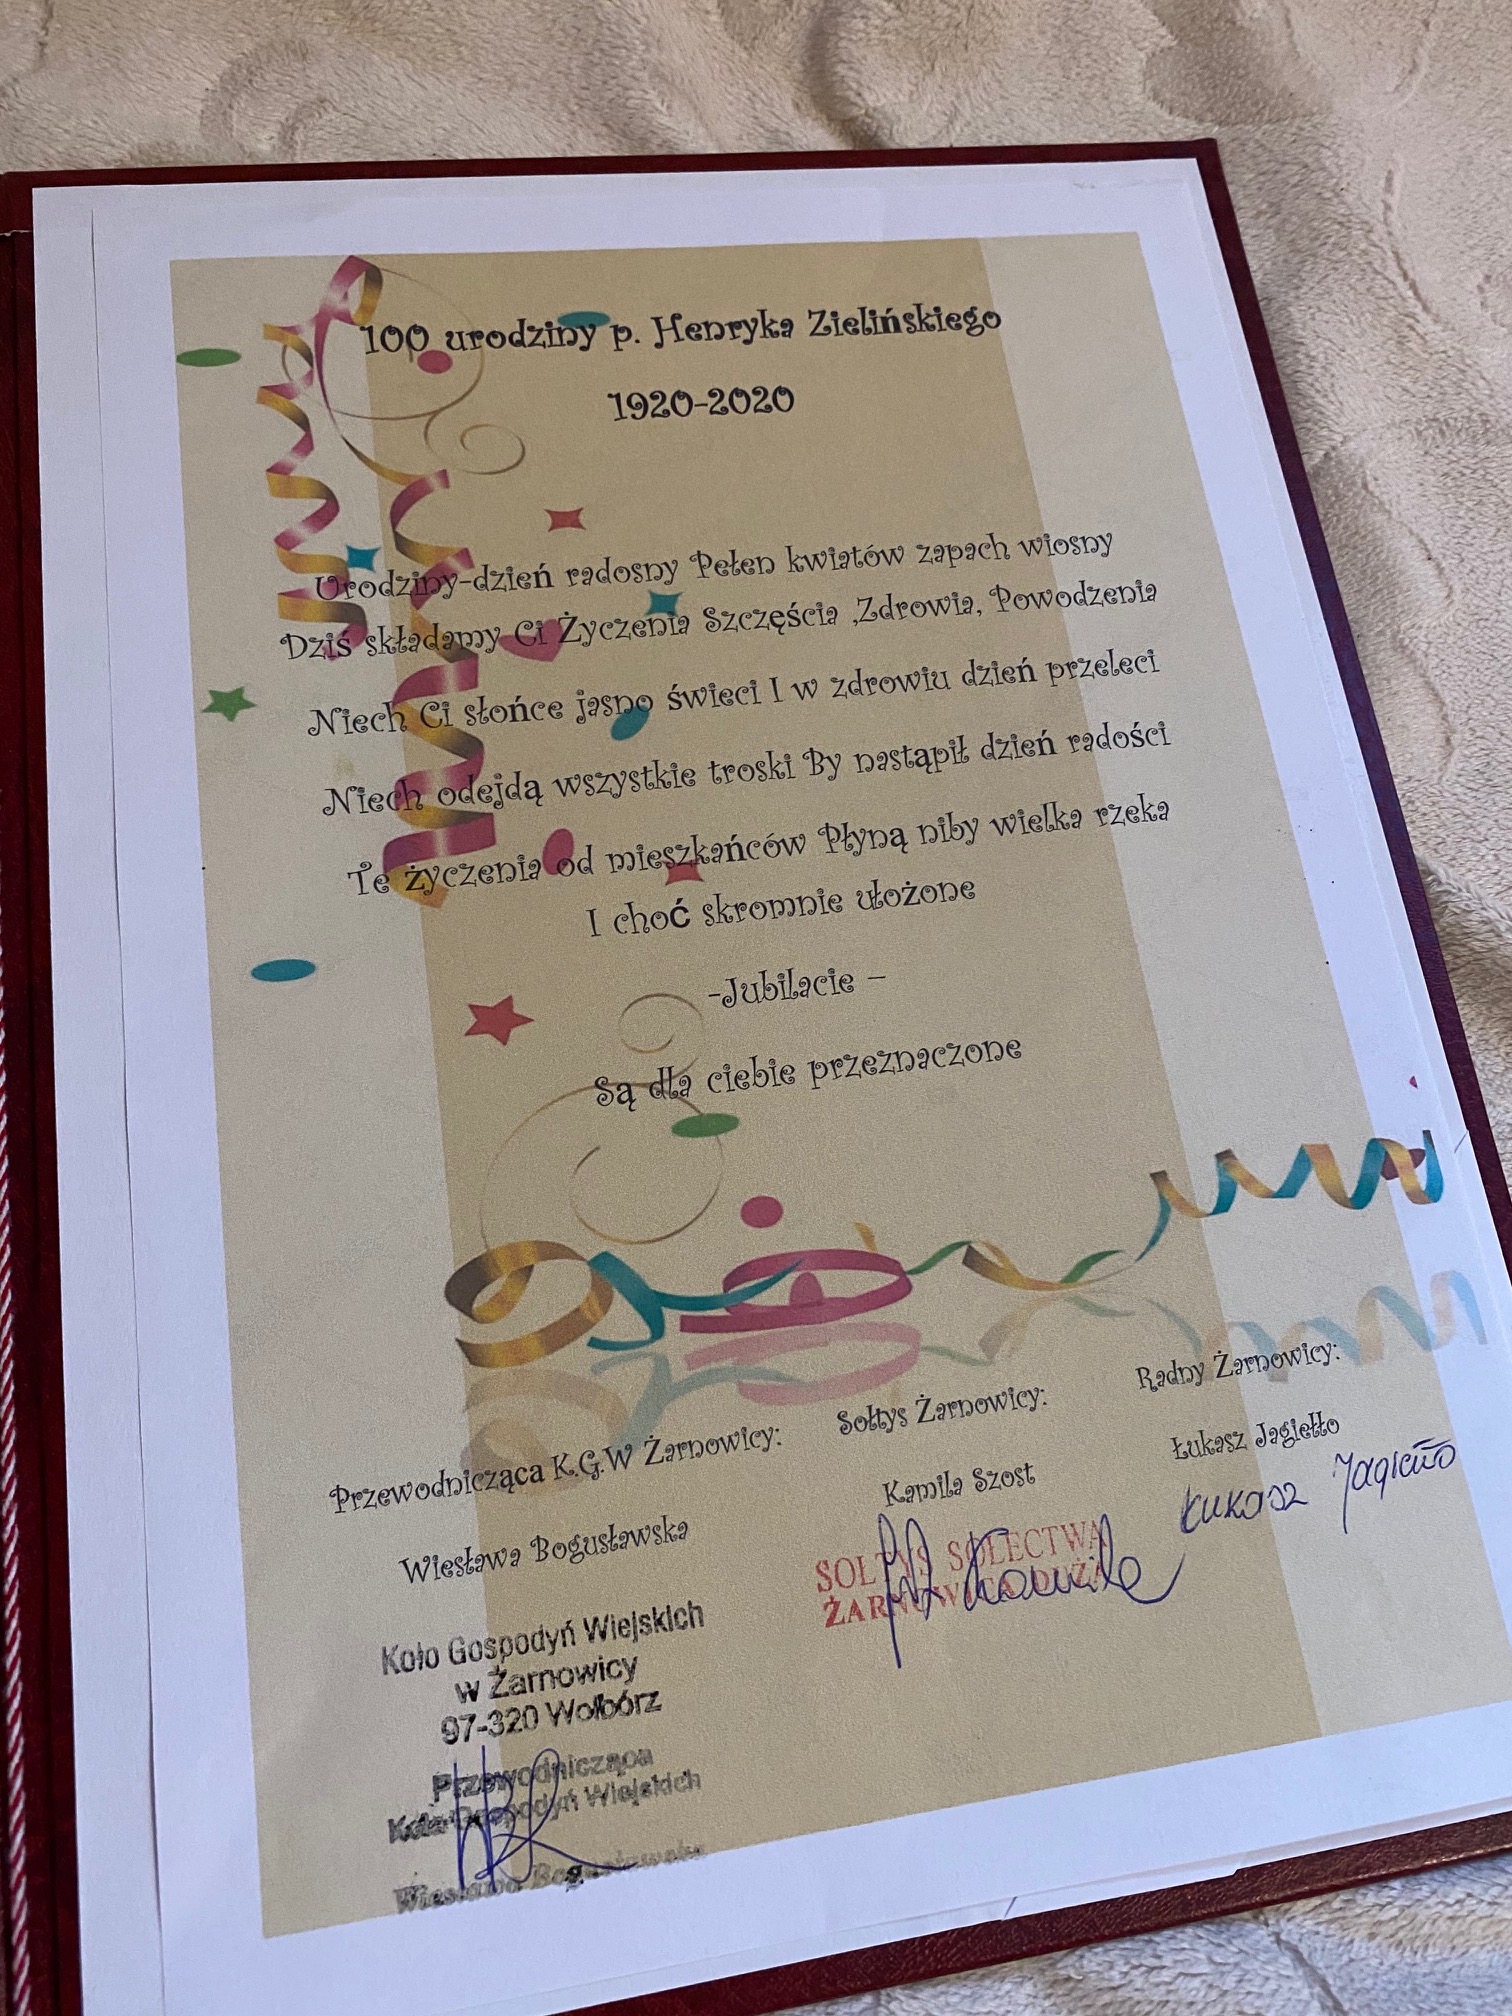 100 urodziny p. Henryka Zielińskiego
1920-2020
Urodziny-dzień radosny Pełen kwiatów zapach wiosny
Dziś składamy Ci Życzenia Szczęścia ,Zdrowia, Powodzenia
Niech Ci słońce jasno świeci I w zdrowiu dzień przeleci
Niech odejdą wszystkie troski By nastąpił dzień radości
Te życzenia od mieszkańców Płyną niby wielka rzeka
I choć skromnie ułożone
-Jubilacie –
Są dla ciebie przeznaczone
Przewodnicząca K.G.W Żarnowicy:
Wiesława Bogusławska
Koło Gospodyń Wiejskich
w Żarnowicy
97-320 Wolbórz
Przewodnicząca
Koła Gospodyń Wiejskich
Wiesława Bogusławska
Sołtys Żarnowicy:
Kamila Szost
SOŁTYS SOŁECTWA
ŻARNOWICA DUŻA
Radny Żarnowicy:
Łukasz Jagiełło
Łukasz Jagiełło